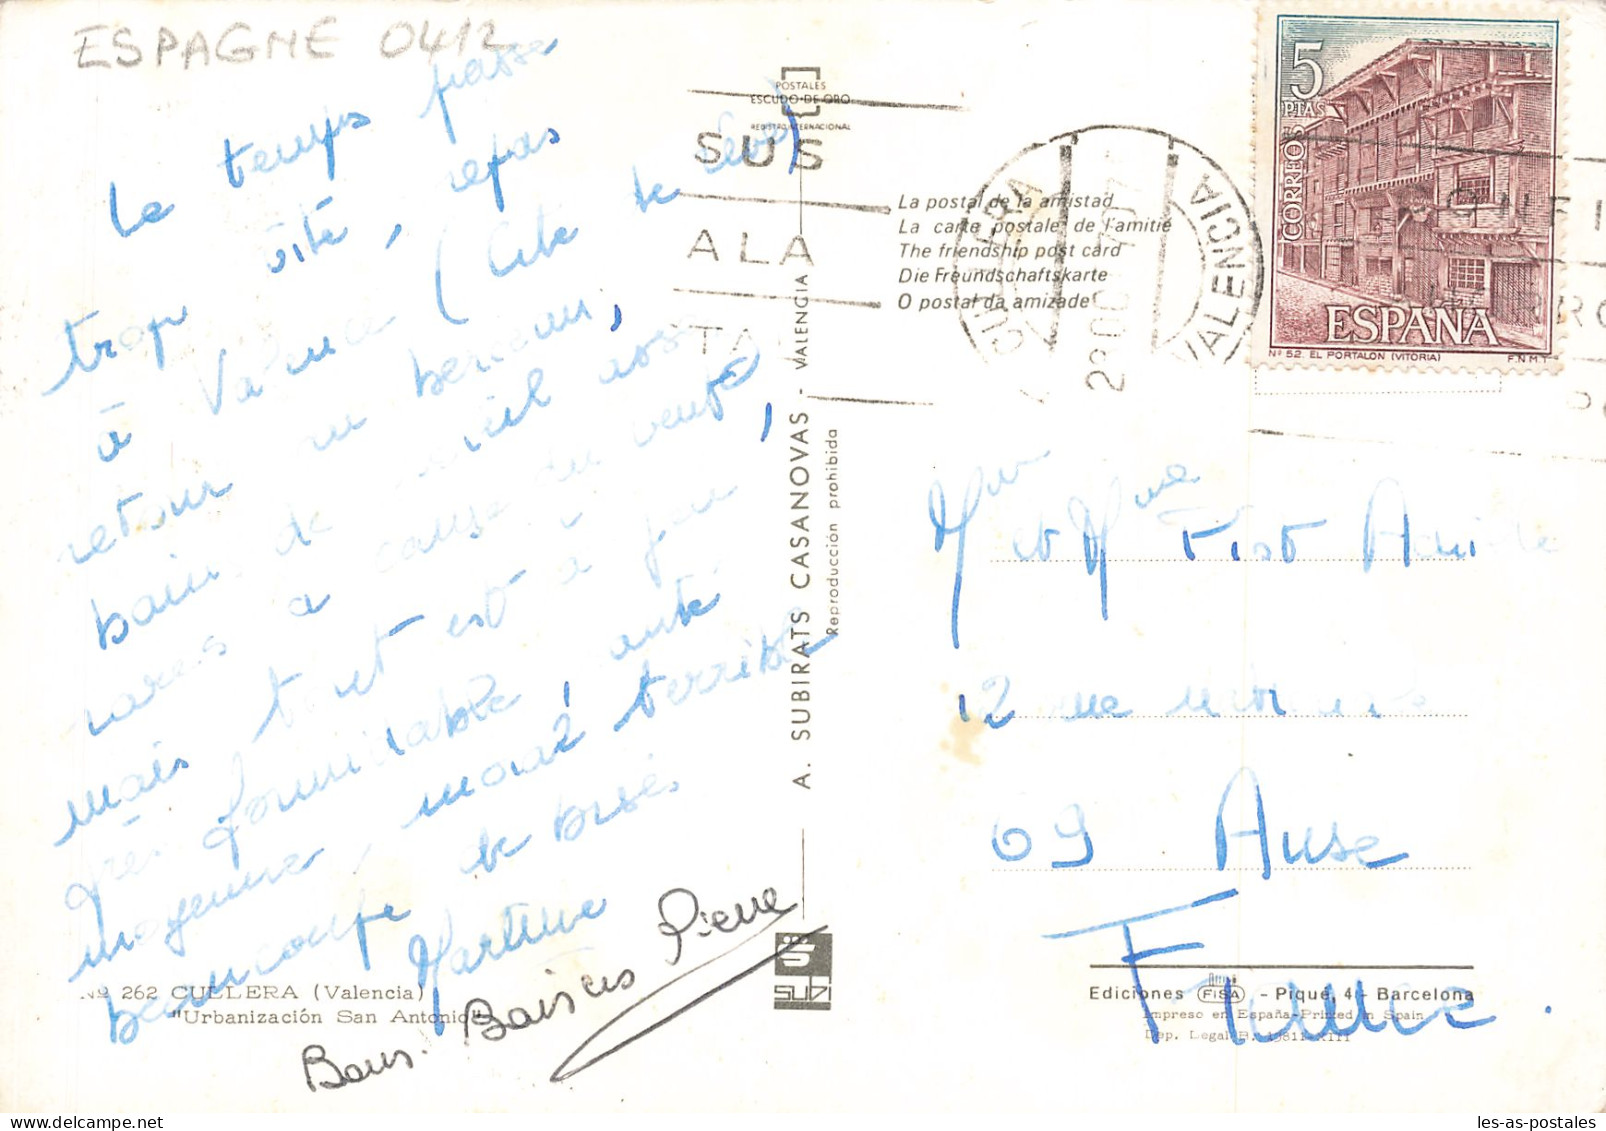 ESPAGNE 0412
Le temps passe
trop vite, repas
à Valence (Cité
retour au berceau,
bains de soleil assez
rares à cause du vent,
mais tout est à peu
près formidable, santé
moyenne, moral terrible
beaucoup de bises
Martine
Bons Baisers Pierre
Nº 262 CULLERA (Valencia)
"Urbanización San Antonio"
POSTALES
ESCUDO DE ORO
REGISTRO INTERNACIONAL
A. SUBIRATS CASANOVAS - VALENCIA
Reproducción prohibida
SUBI
SUS
ALA
TA
La postal de la amistad
La carte postale de l'amitié
The friendship post card
Die Freundschaftskarte
O postal da amizade
CULLERA
VALENCIA
5
PTAS
CORREOS
ESPAÑA
Nº 52. EL PORTALON (VITORIA) F.N.M.T.
Mr et Mme Fist
12 rue
69 Anse
France.
Ediciones FISA - Piqué, 4 - Barcelona
Impreso en España-Printed in Spain
Dep. Legal B.
les-as-postales